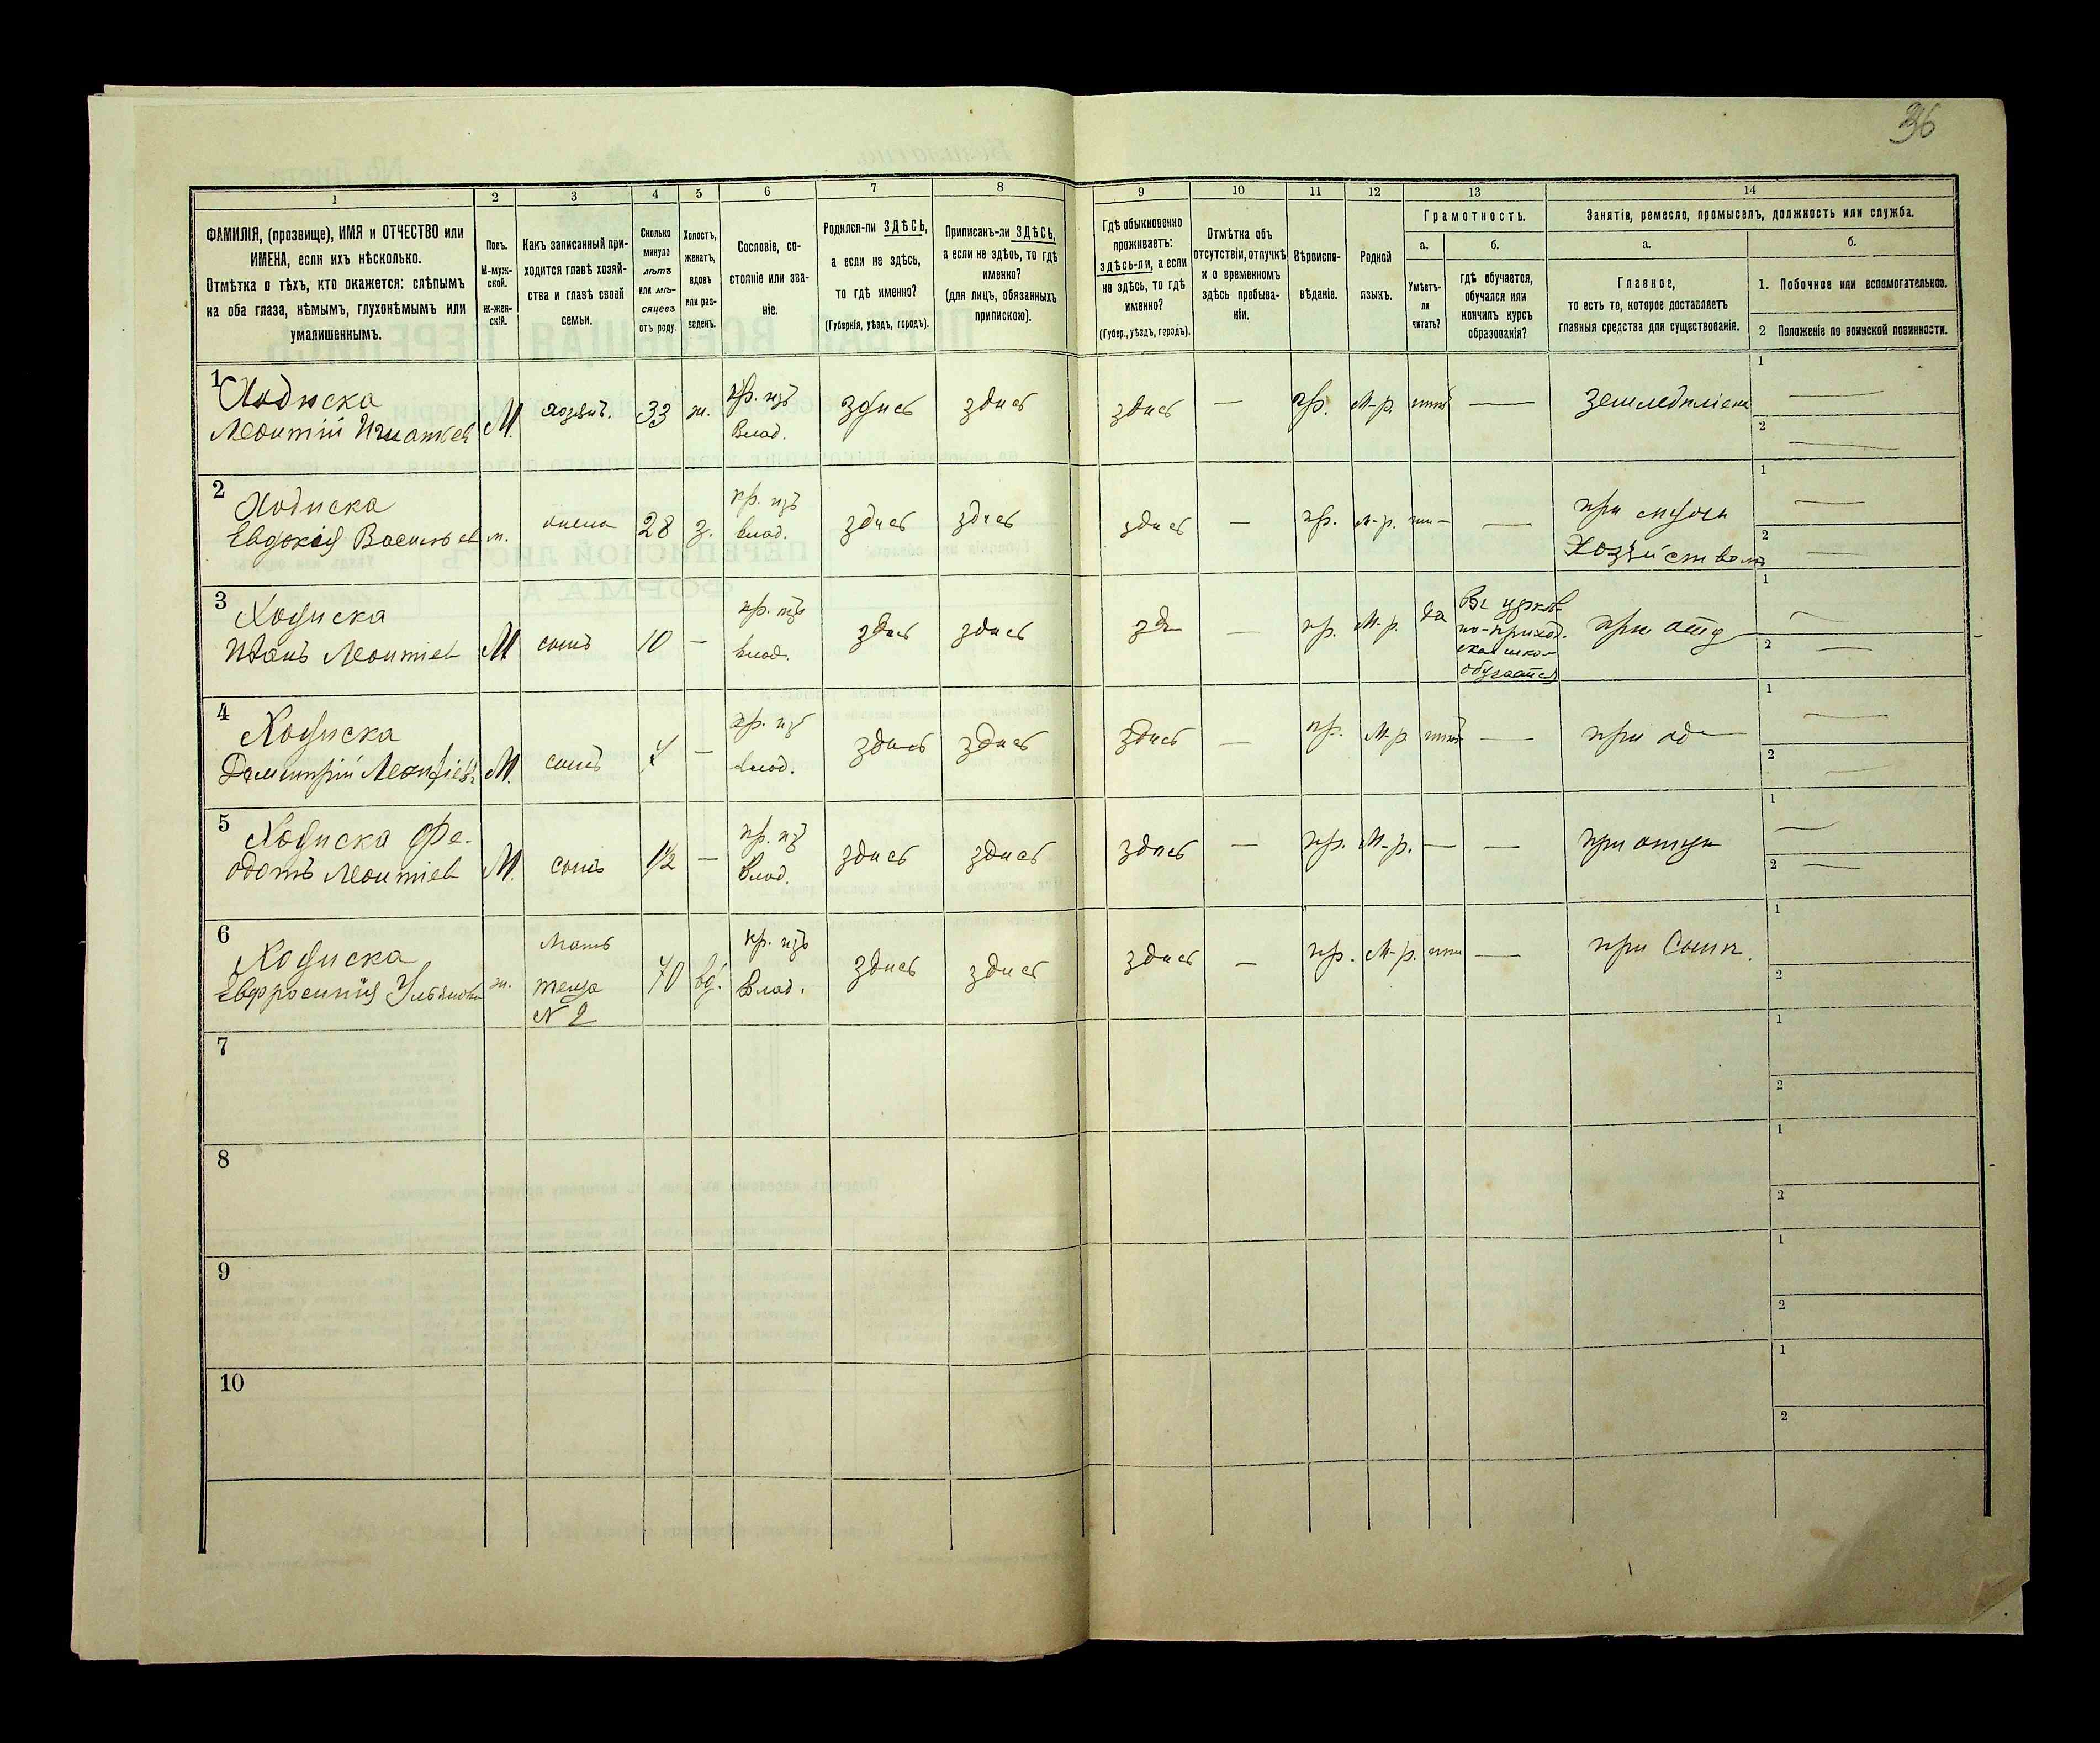 36
1
2
3
4
5
6
7
8
9
10
11
12
13
14
ФАМИЛІЯ, (прозвище), ИМЯ и ОТЧЕСТВО или
ИМЕНА, если ихъ нѣсколько.
Отмѣтка о тѣхъ, кто окажется: слѣпымъ
на оба глаза, нѣмымъ, глухонѣмымъ или
умалишеннымъ.
Полъ.
М-муж-
ской.
Ж-жен-
скій.
Какъ записанный при-
ходится главѣ хозяй-
ства и главѣ своей
семьи.
Сколько
минуло
лѣтъ
или мѣ-
сяцевъ
отъ роду.
Холостъ,
женатъ,
вдовъ
или раз-
веденъ.
Сословіе, со-
стояніе или зва-
ніе.
Родился-ли ЗДѢСЬ,
а если не здѣсь,
то гдѣ именно?
(Губернія, уѣздъ, городъ).
Приписанъ-ли ЗДѢСЬ,
а если не здѣсь, то гдѣ
именно?
(для лицъ, обязанныхъ
припискою).
Гдѣ обыкновенно
проживаетъ:
здѣсь-ли, а если
не здѣсь, то гдѣ
именно?
(Губер., уѣздъ, городъ).
Отмѣтка объ
отсутствіи, отлучкѣ
и о временномъ
здѣсь пребыва-
ніи.
Вѣроиспо-
вѣданіе.
Родной
языкъ.
Грамотность.
а.
Умѣетъ-
ли
читать?
б.
Гдѣ обучается,
обучался или
кончилъ курсъ
образованія?
Занятія, ремесло, промыселъ, должность или служба.
а.
Главное,
то есть то, которое доставляетъ
главныя средства для существованія.
б.
1. Побочное или вспомогательное.
2 Положеніе по воинской повинности.
1
Ходиска
Леонтій Игнатьев
М.
хозяинъ.
33
ж.
кр. изъ
Влад.
здѣсь
здѣсь
здѣсь
—
пр.
М-р.
нѣтъ
—
земледѣліе
1 —
2 —
2
Ходиска
Евдокія Васильев
ж.
жена
28
з.
кр. изъ
влад.
здѣсь
здѣсь
здѣсь
—
пр.
М-р.
—
при мужѣ
Хозяйством
1 —
2 —
3
Ходиска
Иванъ Леонтіев
М
сынъ
10
—
кр. изъ
влад.
здѣсь
здѣсь
зд
—
пр.
М-р.
да
Въ церков-
но-приход.
ской шко-
обучается
при отц
1 —
2 —
4
Ходиска
Димитрій Леонтіевъ
М.
сынъ
—
кр. из
влад.
здѣсь
здѣсь
здѣсь
—
пр.
М-р
нѣтъ
—
при
1 —
2 —
5
Ходиска Фе-
одотъ Леонтіев
М.
сынъ
1/2
—
кр. из
Влад.
здѣсь
здѣсь
здѣсь
—
пр.
М-р.
—
—
при отцѣ
1 —
2 —
6
Ходиска
Евфросинія Ульянов
ж.
Мать
теща
№ 2
70
вд.
кр. изъ
Влад.
здѣсь
здѣсь
здѣсь
—
пр.
М-р.
—
при Сынѣ.
1
2
7
1
2
8
1
2
9
1
2
10
1
2